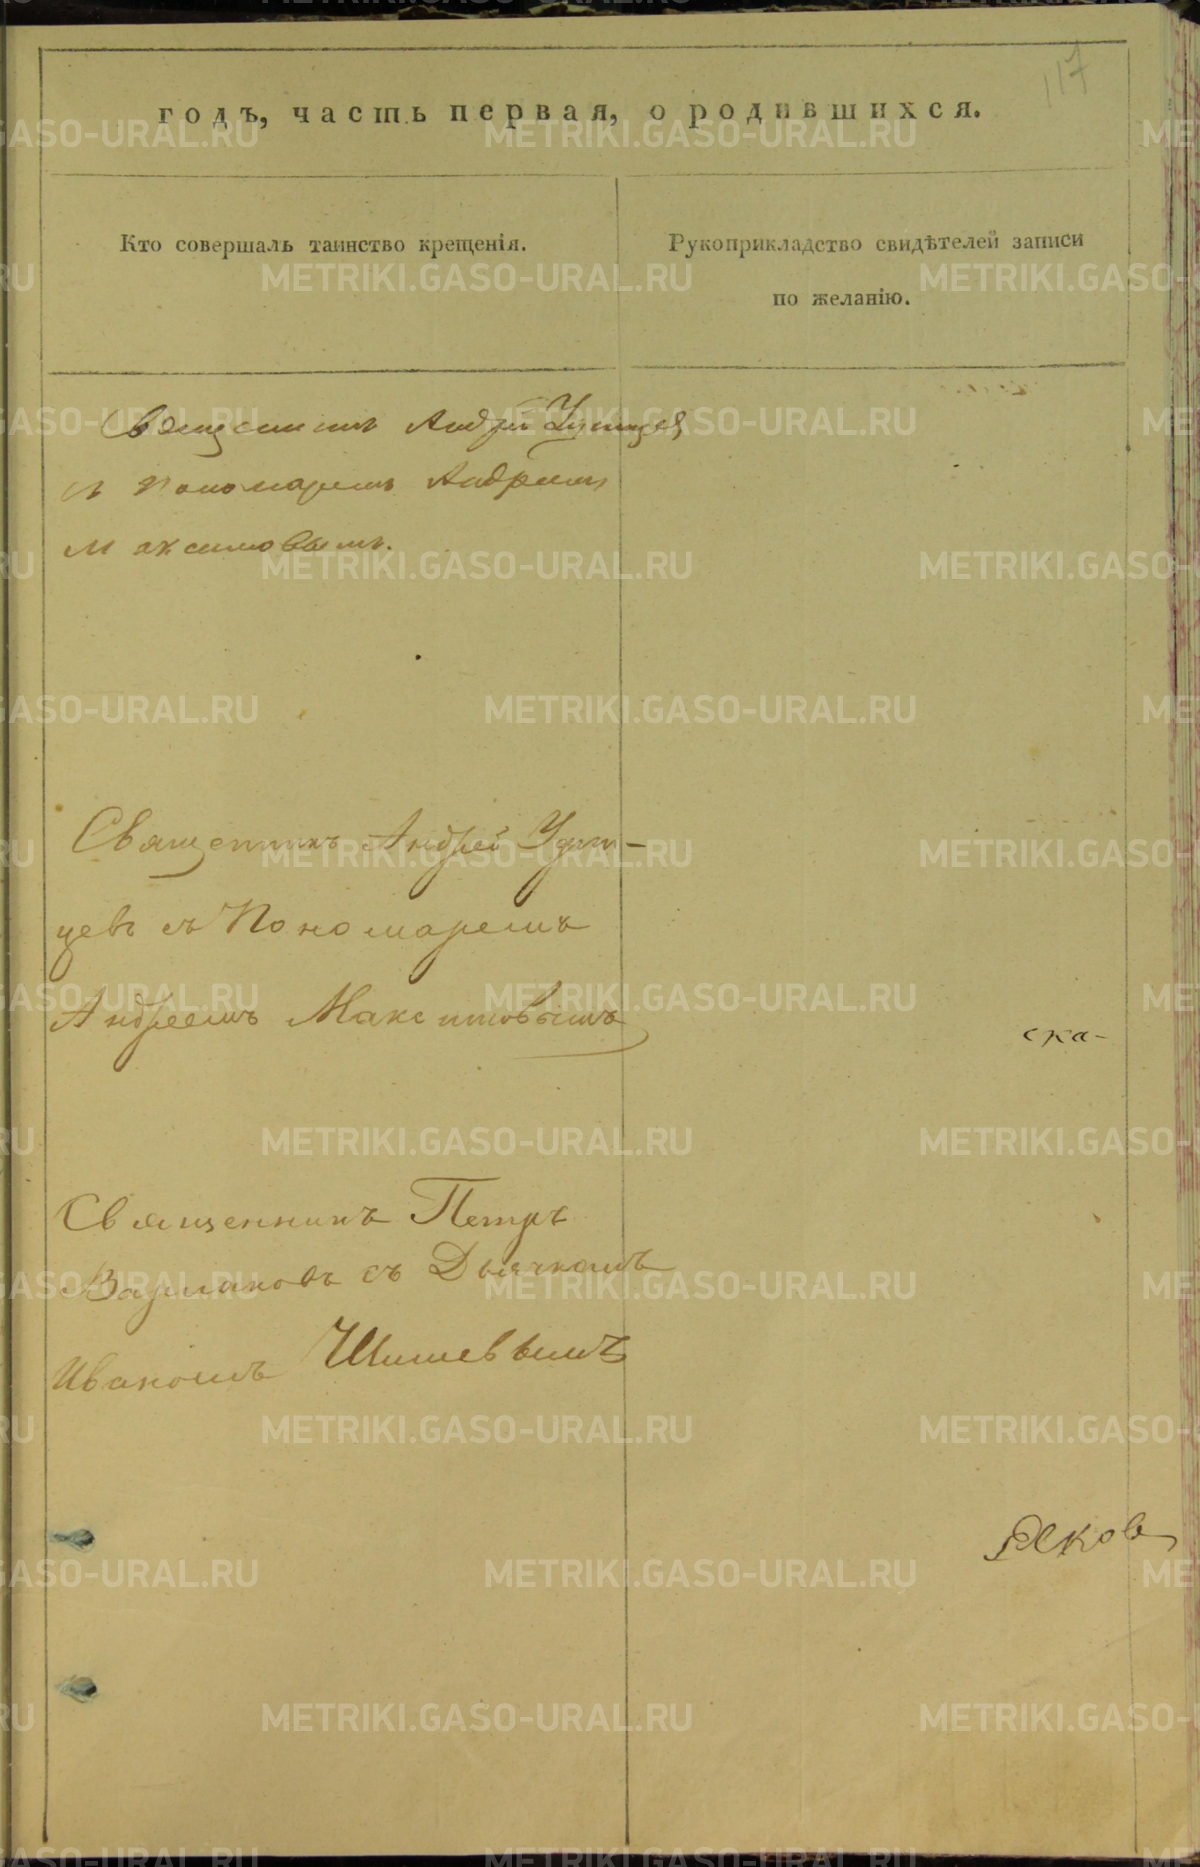 117
годъ, часть первая, о родившихся.
Кто совершалъ таинство крещенія.
Рукоприкладство свидѣтелей записи
по желанію.
Священникъ Андрей Удинцев
съ Пономаремъ Андреемъ
Максимовымъ.
Священникъ Андрей Удин-
цевъ съ Пономаремъ
Андреемъ Максимовымъ
ска-
Священникъ Петръ
Варлаковъ съ Дьячкомъ
Иваномъ Шишевымъ
Яков
METRIKI.GASO-URAL.RU